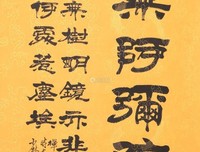 無阿彌
無樹明鏡亦非
何處惹塵埃